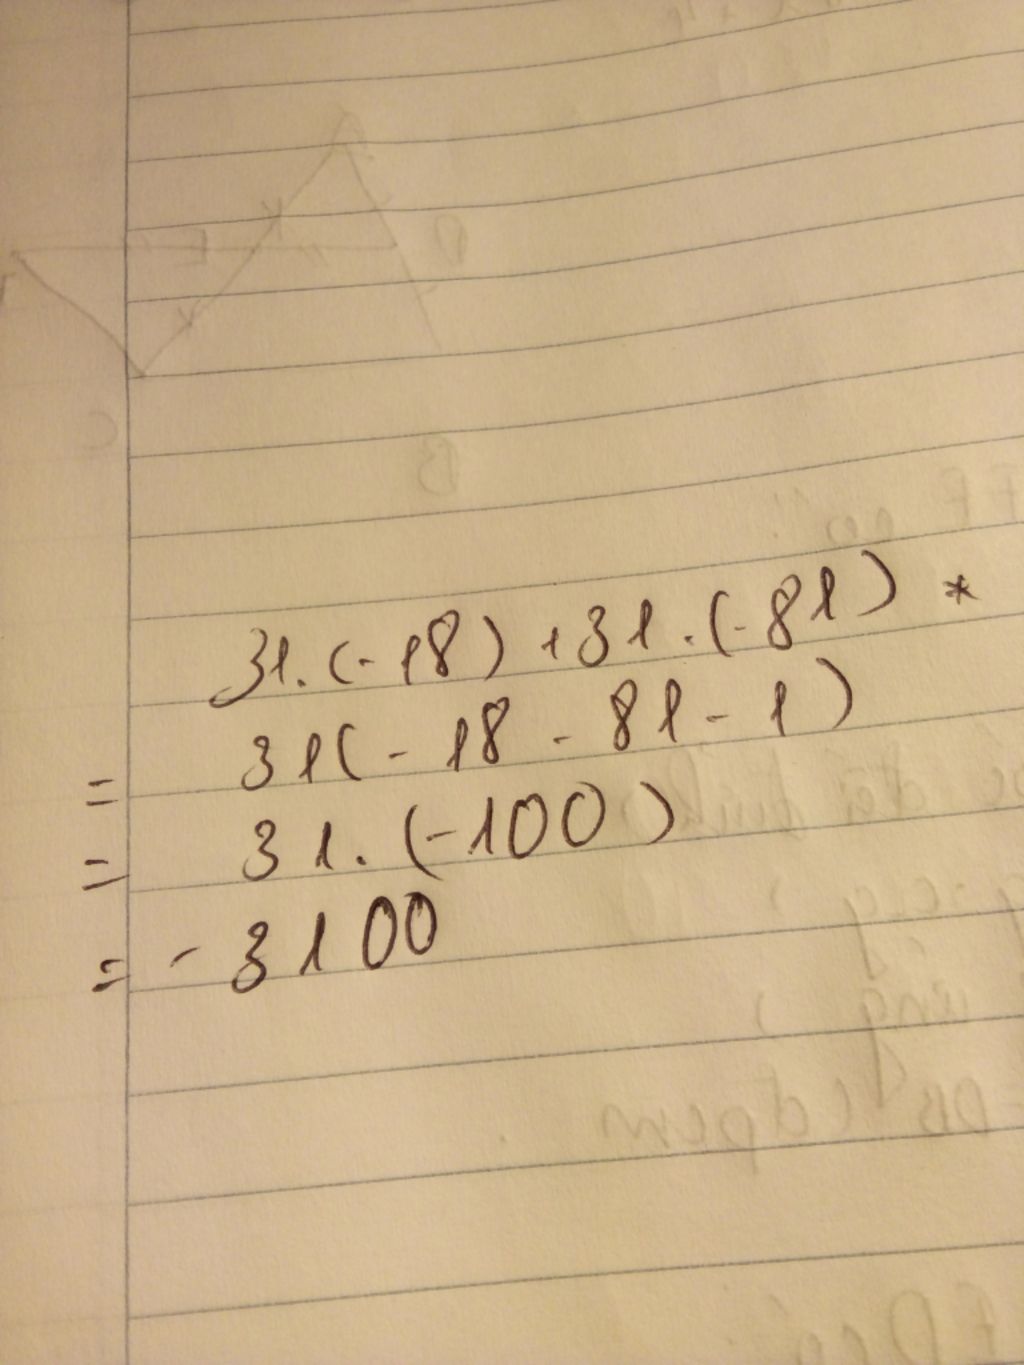 31.(-18) + 31.(-81) *
= 31(-18 - 81 - 1)
= 31.(-100)
= - 3100